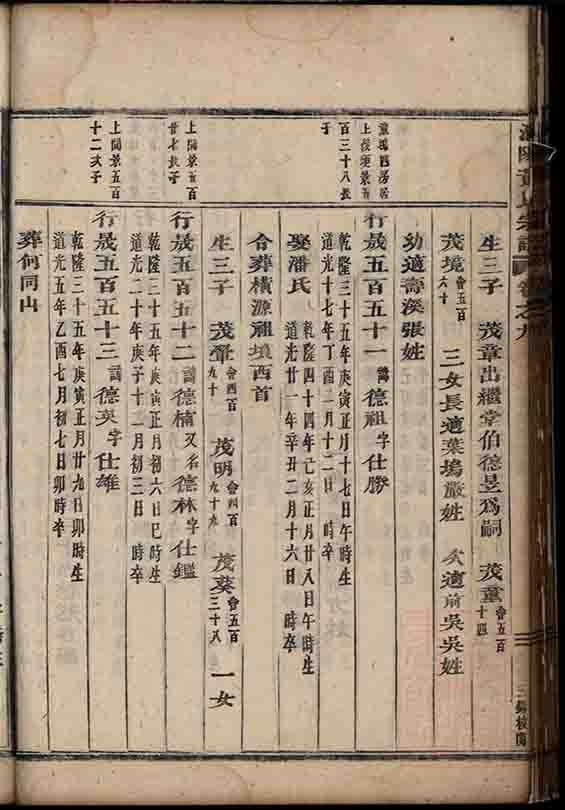 宗譜 卷之九
生三子 茂章出繼堂伯德昱爲嗣 茂童會五百十四
茂境會五百六十 三女長適葉塢嚴姓 次適前吳吳姓
幼適壽溪張姓
上後
百三十八長
子
行晟五百五十一諱德祖字仕勝
乾隆三十五年庚寅正月十七日午時生
道光十七年丁酉二月十二日 時卒
娶潘氏 乾隆四十四年己亥正月廿八日午時生
道光廿一年辛丑二月十六日 時卒
合葬橫源祖墳西首
生三子 會四百九十 茂明會四百九十九 茂葵會五百三十八 一女
上開景五百
廿七次子
行晟五百五十二諱德楠又名德林字仕鑑
乾隆三十五年庚寅正月初六日巳時生
道光二十年庚子十一月初三日 時卒
上開景五百
十二次子
行晟五百五十三諱德英字仕雄
乾隆三十五年庚寅正月廿九日卯時生
道光五年乙酉七月初七日卯時卒
葬何同山